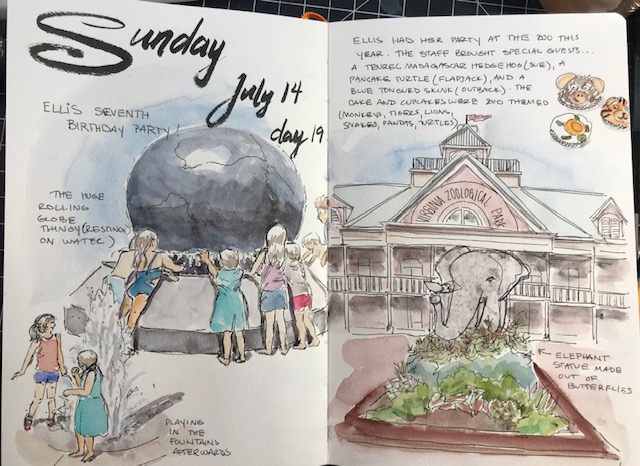 Sunday
July 14
day 19
ELLIS SEVENTH
BIRTHDAY PARTY!
THE HUGE
ROLLING
GLOBE
THINGY (RESTING
ON WATER)
PLAYING
IN THE
FOUNTAINS
AFTERWARDS
ELLIS HAD HER PARTY AT THE ZOO THIS
YEAR. THE STAFF BROUGHT SPECIAL GUESTS...
A TENREC MADAGASCAR HEDGEHOG (SUE), A
PANCAKE TURTLE (FLAPJACK), AND A
BLUE TONGUED SKINK (OUTBACK). THE
CAKE AND CUPCAKES WERE ZOO THEMED
(MONKEYS, TIGERS, LIONS,
SNAKES, PANDAS, TURTLES)
VIRGINIA ZOOLOGICAL PARK
ELEPHANT
STATUE MADE
OUT OF
BUTTERFLIES